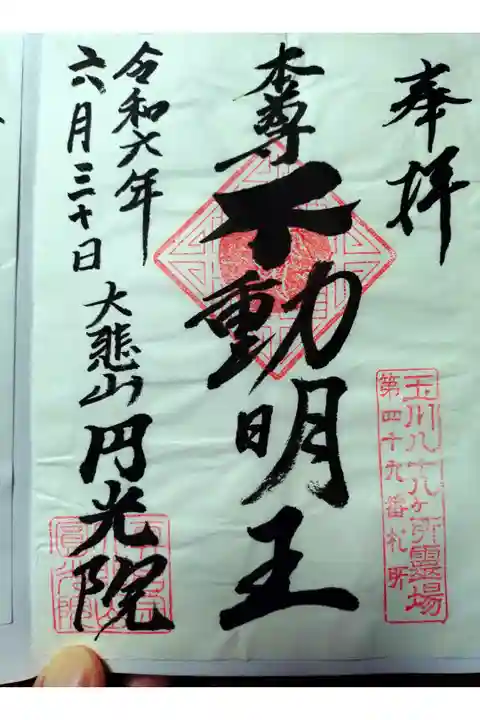 奉拝
玉川八十八ケ所霊場
第四十九番札所
本尊不動明王
令和六年
六月三十日
大悲山円光院